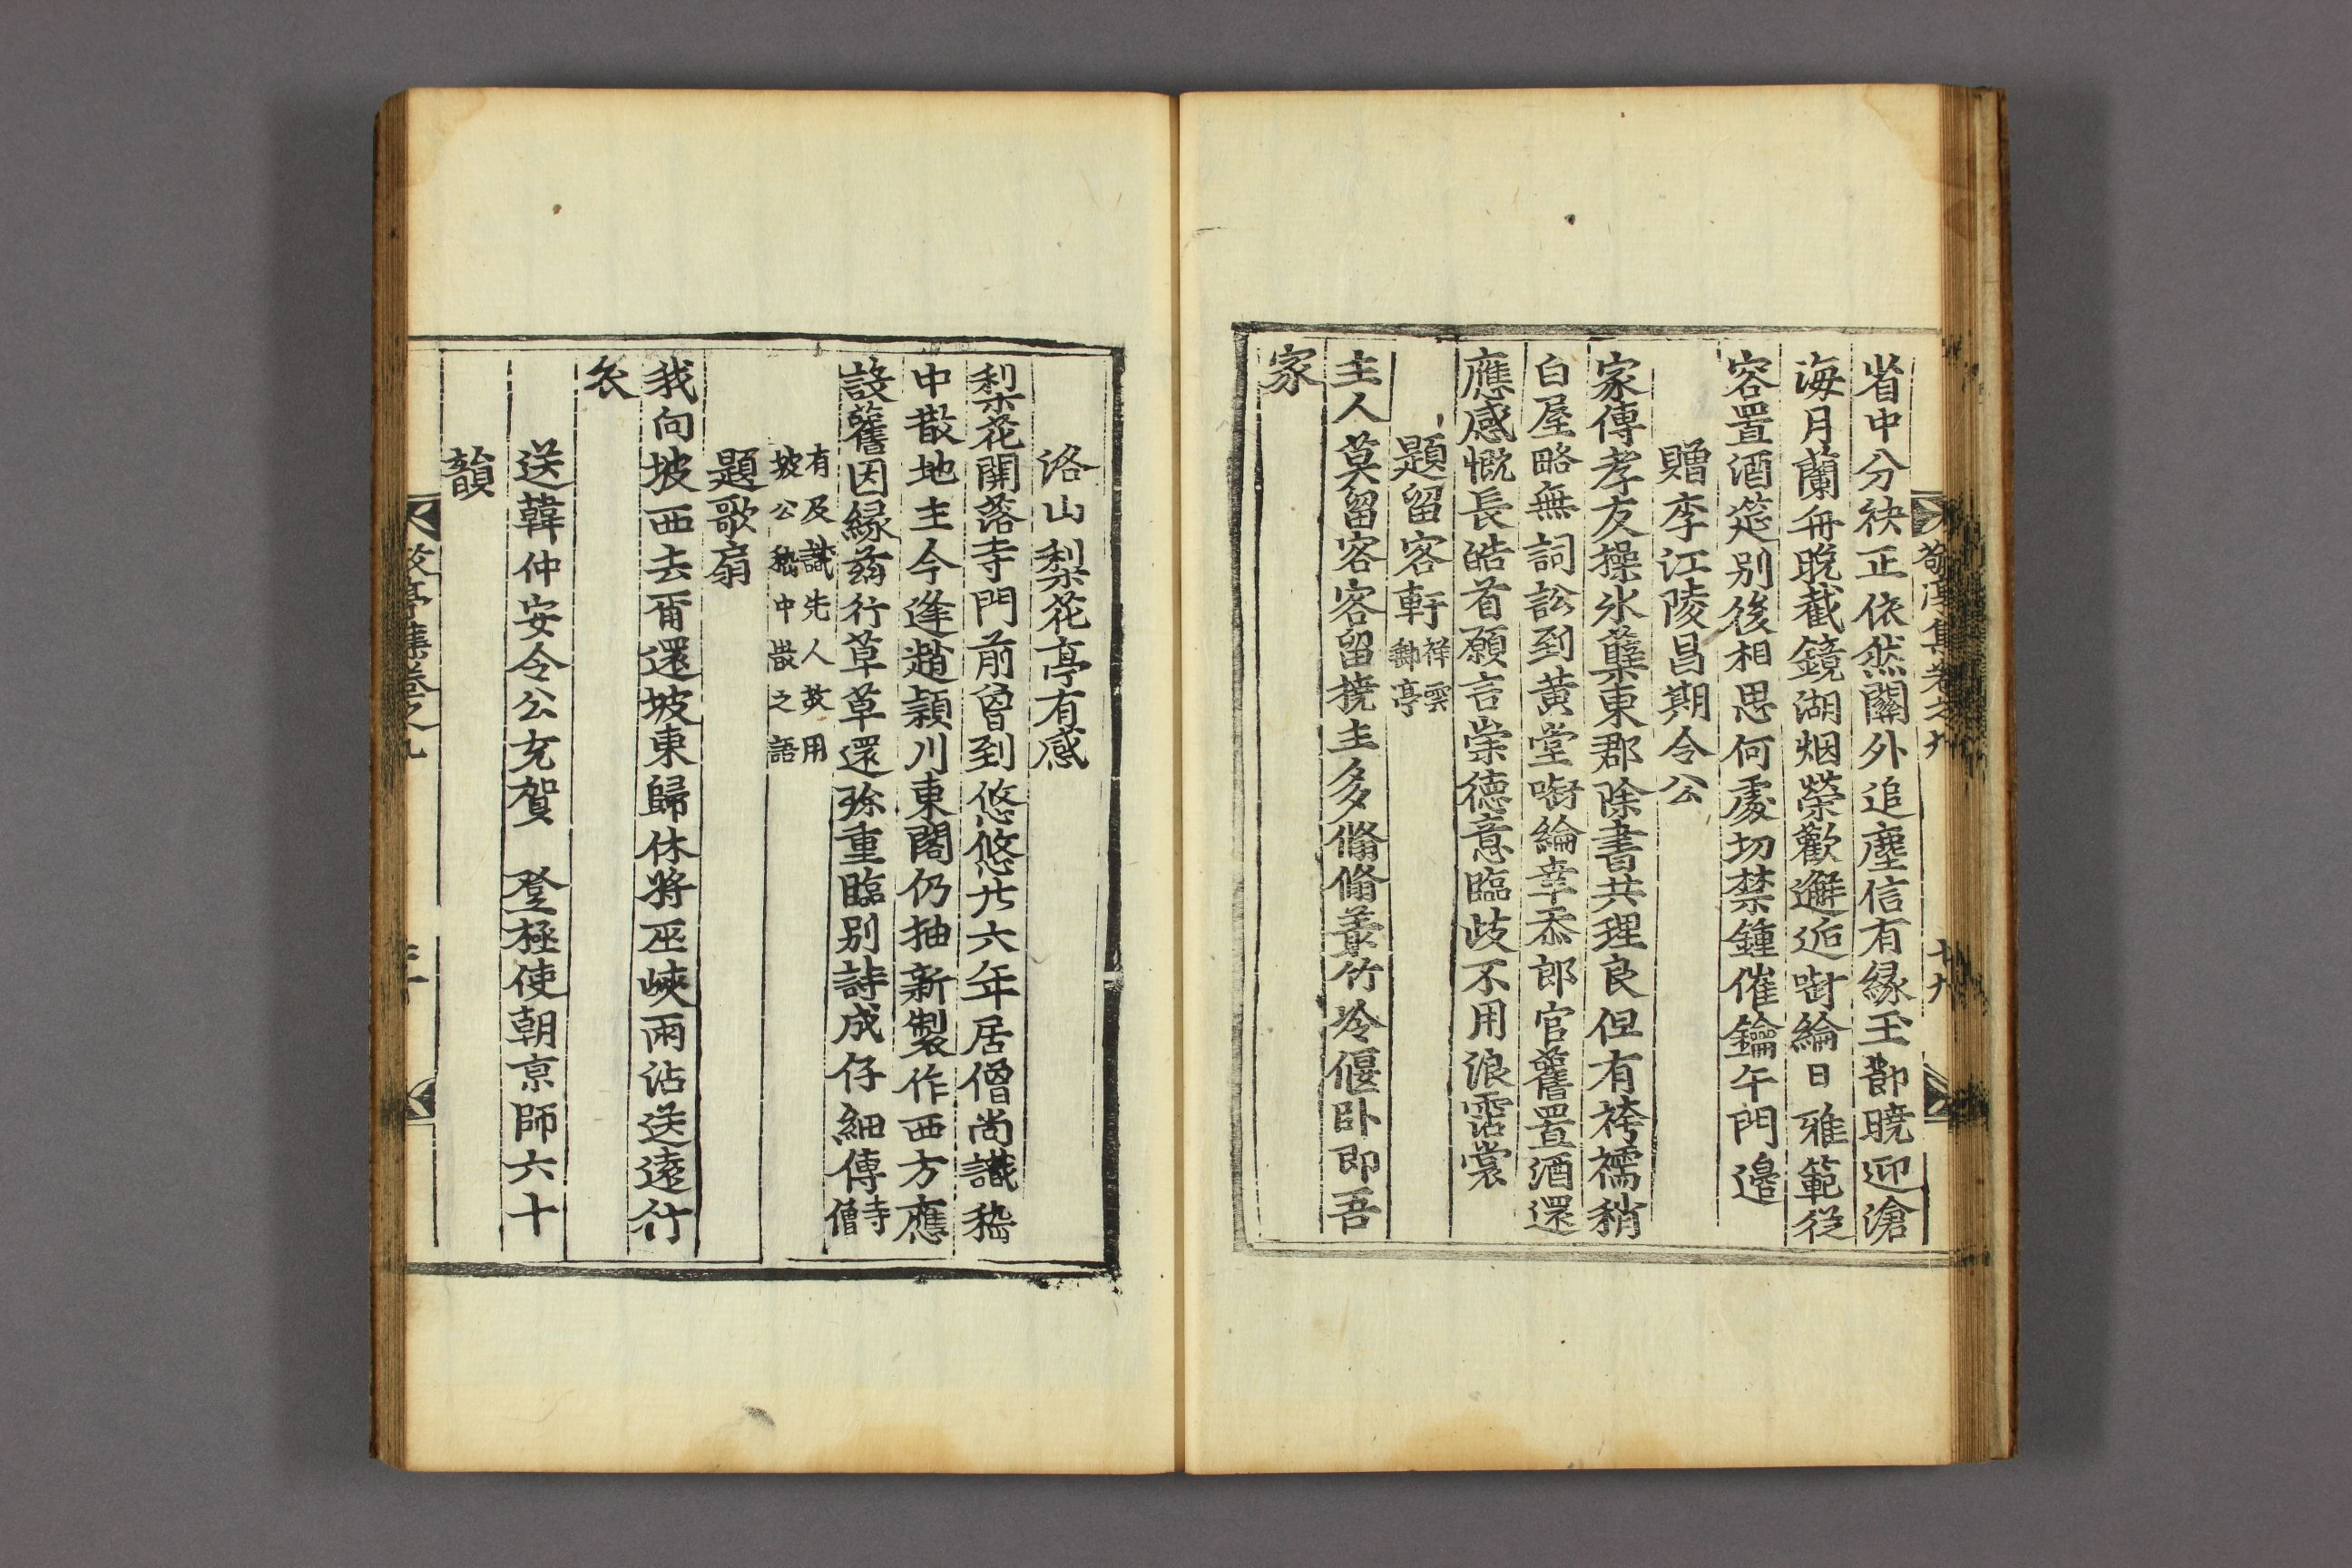 敬亭集卷之九
十九
省中分袂正依然關外追塵信有緣玉節曉迎滄
海月蘭舟晩載鏡湖烟榮歡邂逅啣綸日雅範從
容置酒筵別後相思何處切禁鍾催鑰午門邉
贈李江陵昌期令公
家傳孝友操氷蘖東郡除書共理良但有袴襦稍
白屋略無詞訟到黃堂啣綸幸忝郎官舊置酒還
應感慨長皓首願言崇德意臨歧不用浪霑裳
題留客軒祥雲
鄕亭
主人莫留客客留撓主多翛翛叢竹冷偃卧即吾
家
洛山梨花亭有感
梨花開落寺門前曾到悠悠廿六年居僧尚識嵇
中散地主今逢趙潁川東閣仍抽新製作西方應
設舊因緣玆行草草還珎重臨別詩成仔細傳寺
僧
有及識先人故用
坡公嵇中散之語
題歌扇
我向坡西去爾還坡東歸休將巫峽雨沾送遠行
衣
送韓仲安令公充賀　登極使朝京師六十
韻
敬亭集卷之九
二十